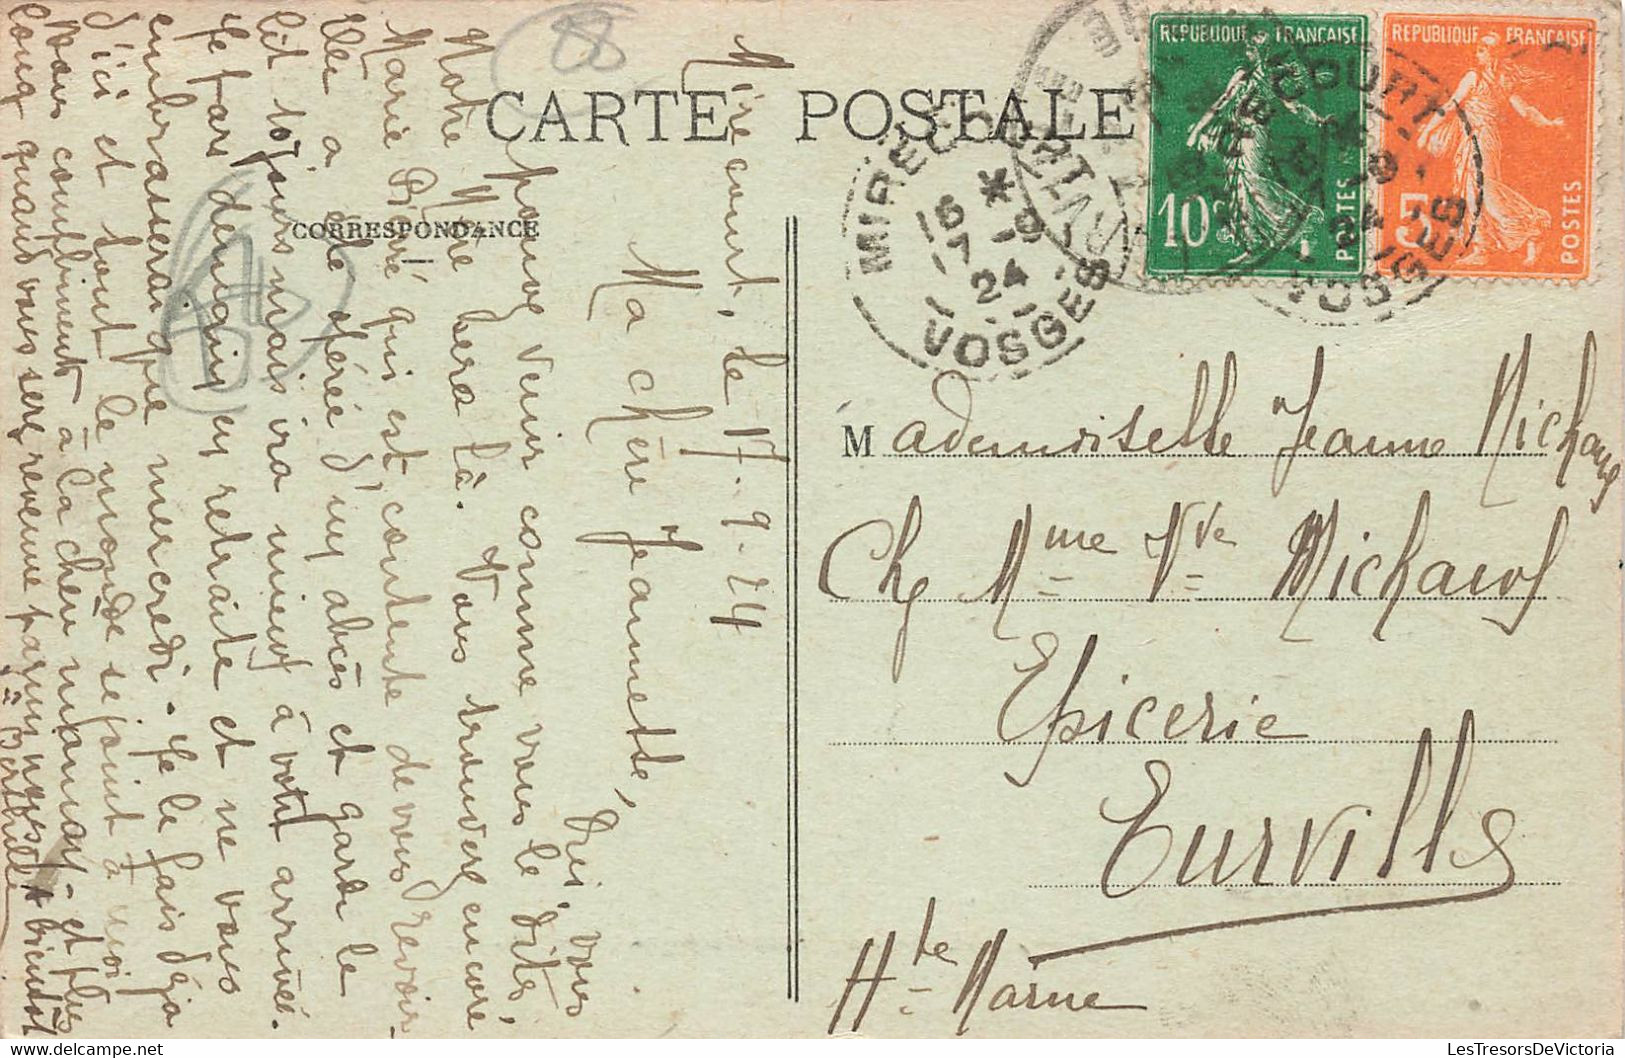 CARTE POSTALE
CORRESPONDANCE
REPUBLIQUE FRANÇAISE
10c
POSTES
REPUBLIQUE FRANÇAISE
5
POSTES
MIRECOURT
16 * 17 -9 24
VOSGES
MIRECOURT
VOSGES
Mirecourt, le 17-9-24
Ma chère Jeannette,
Oui, vous
pouvez venir comme vous le dites,
Notre Mère sera là. Vous trouverez encore
Marie Piété qui est contente de vous revoir.
Elle a été opérée d'un abcès et garde le
lit toujours mais ira mieux à votre arrivée.
Je pars demain en retraite et ne vous
embrasserai que mercredi. Je le fais déjà
d'ici et tout le monde se joint à moi
bien à la chère maman - et plus
quand vous serez revenue parmi nous. A bientôt
Mademoiselle Jeanne Michaud
Chz Mme Vve Michaud
Epicerie
Eurville
Hte Marne
LesTresorsDeVictoria